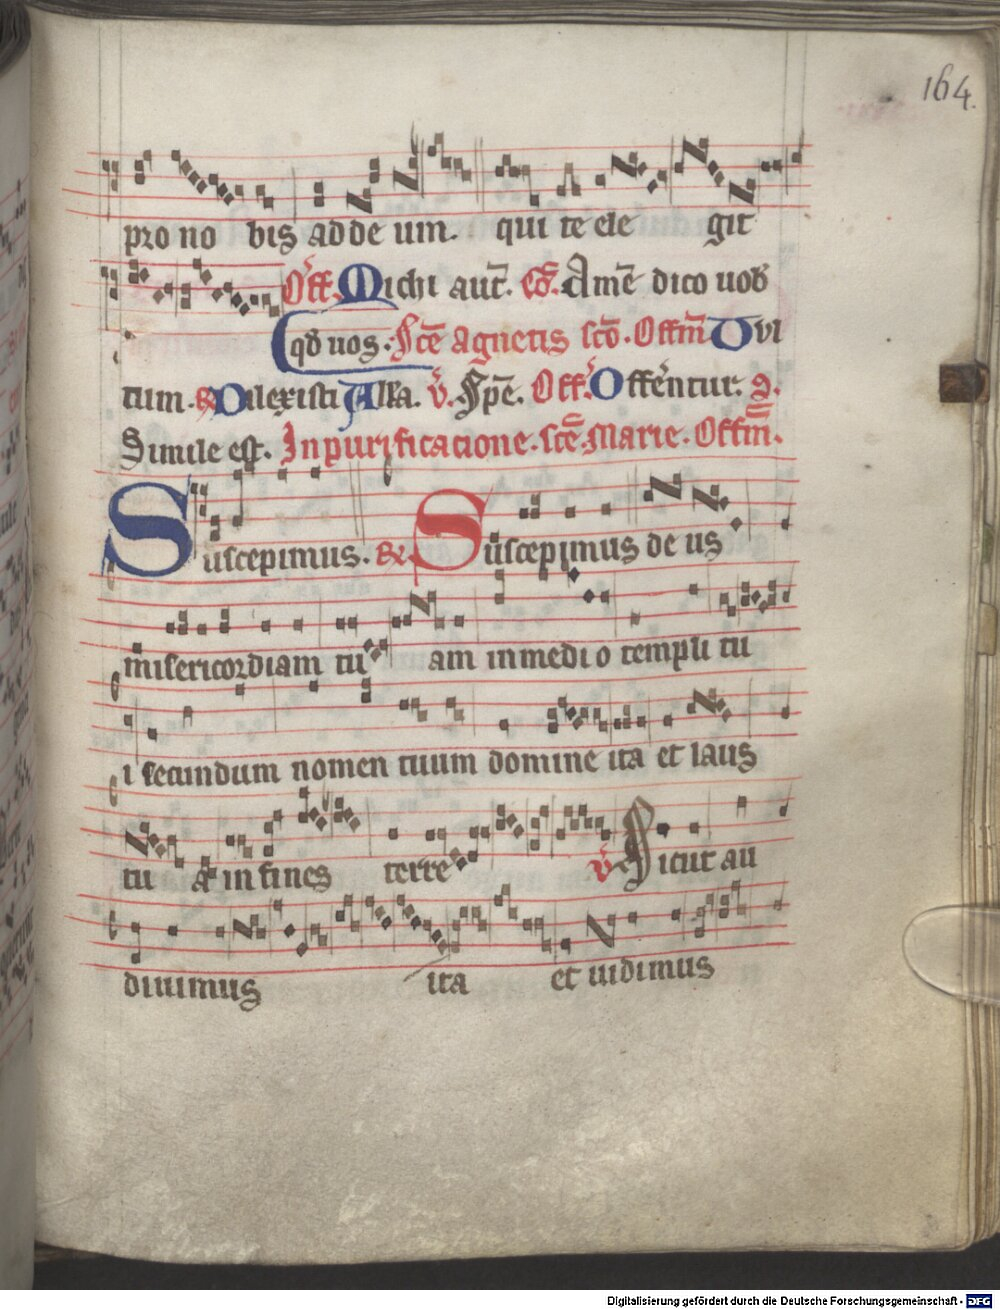 164.
pro no bis ad de um. qui te ele git
Off. Michi aut̄. Cō. Amē dico uob
qd uos. Sce agnetis scō. Offm̄ Vvl
tum. R Dilexisti Alla. v̄. Spē. Off. Offerntur. 
Simile est. In purificacione. scē Marie. Offm̄.
Suscepimus. R Suscepimus de us
misericordiam tu am in medi o templi tu
i secundum nomen tuum domine ita et laus
tu a in fines terre v̄ Sicut au
diuimus ita et uidimus
Digitalisierung gefördert durch die Deutsche Forschungsgemeinschaft - DFG